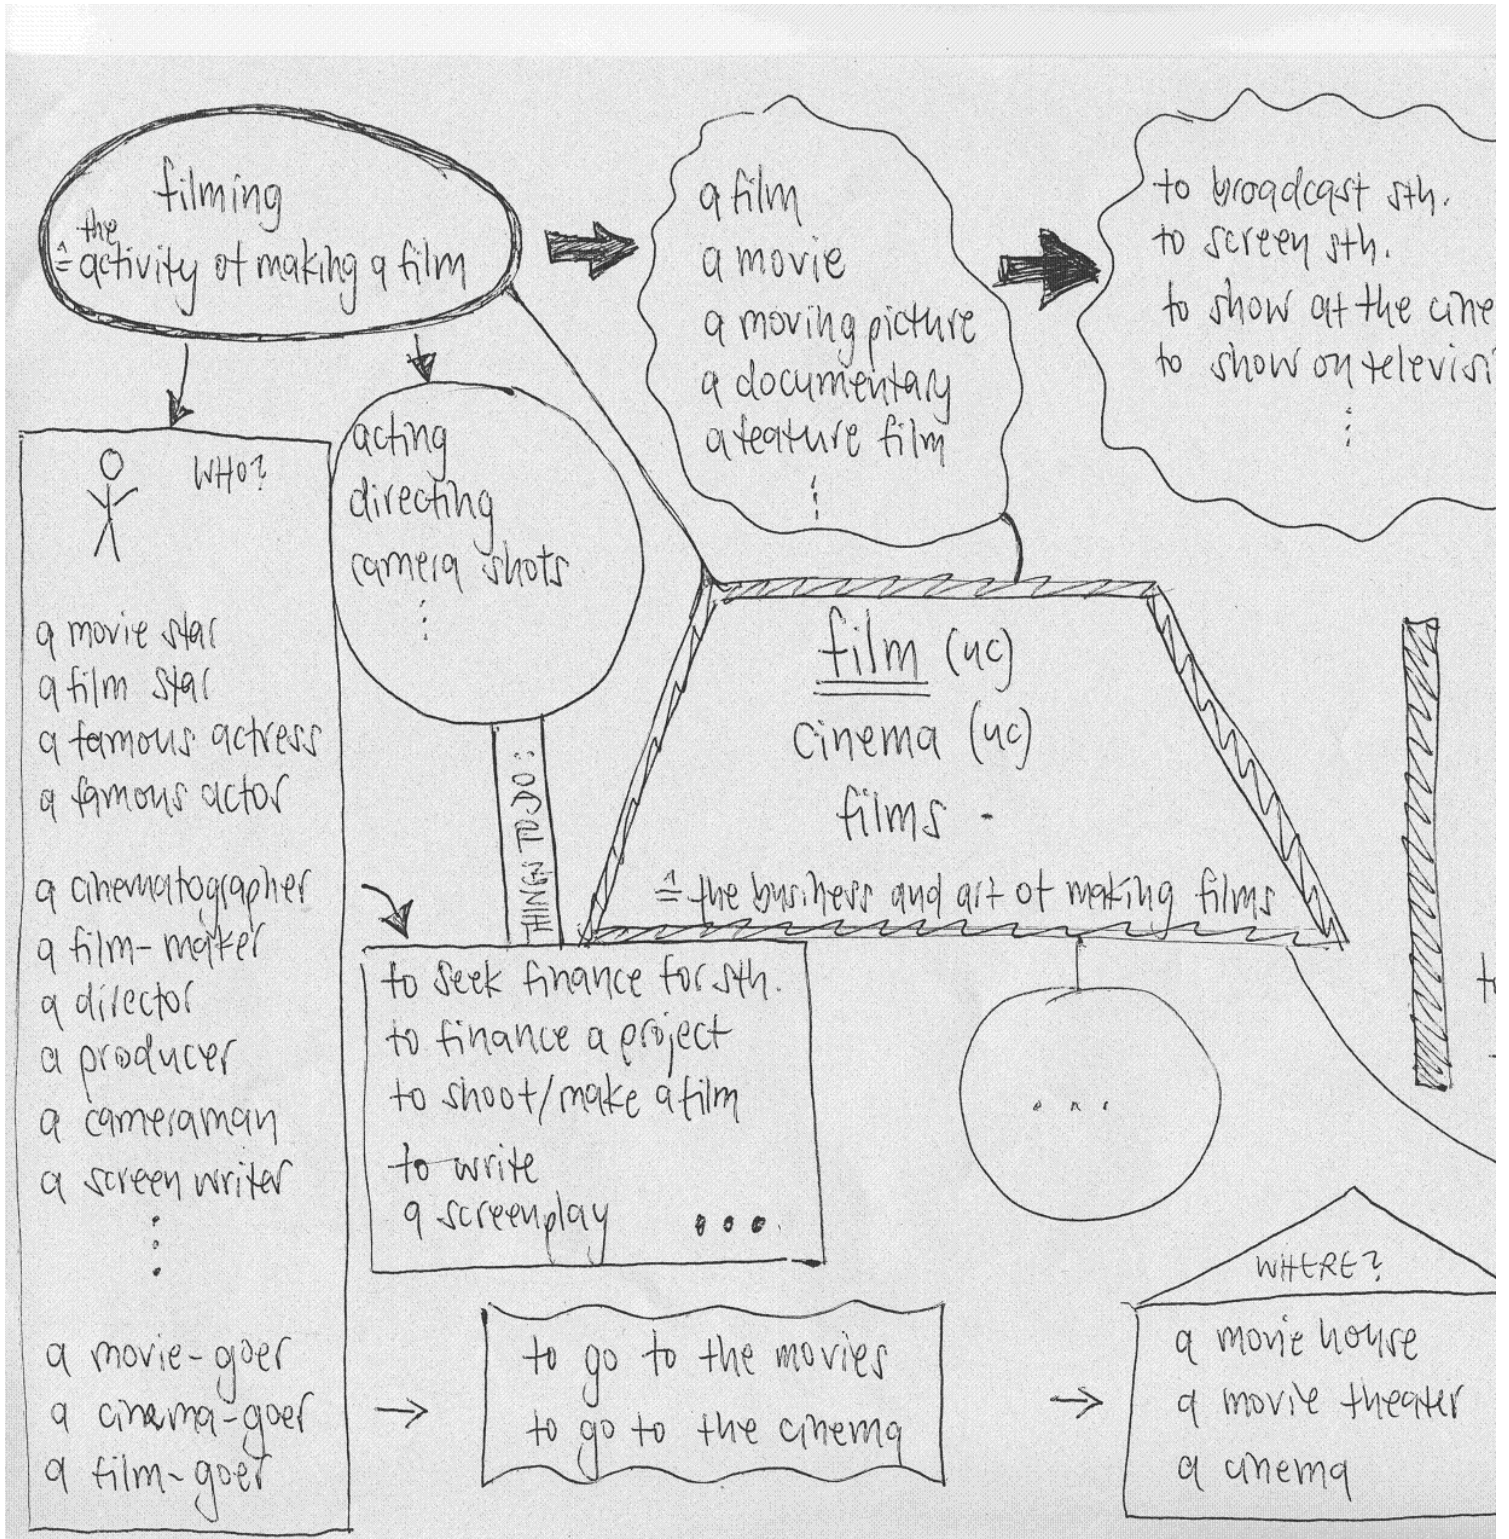 filming
the
≙ activity of making a film
a film
a movie
a moving picture
a documentary
a feature film
⋮
to broadcast sth.
to screen sth.
to show at the cine
to show on televisi
⋮
WHO?
a movie star
a film star
a famous actress
a famous actor
a cinematographer
a film-maker
a director
a producer
a cameraman
a screen writer
⋮
a movie-goer
a cinema-goer
a film-goer
acting
directing
camera shots
⋮
THINGS TO DO:
film (uc)
cinema (uc)
films
≙ the business and art of making films
to seek finance for sth.
to finance a project
to shoot/make a film
to write
a screenplay ...
...
to go to the movies
to go to the cinema
WHERE?
a movie house
a movie theater
a cinema